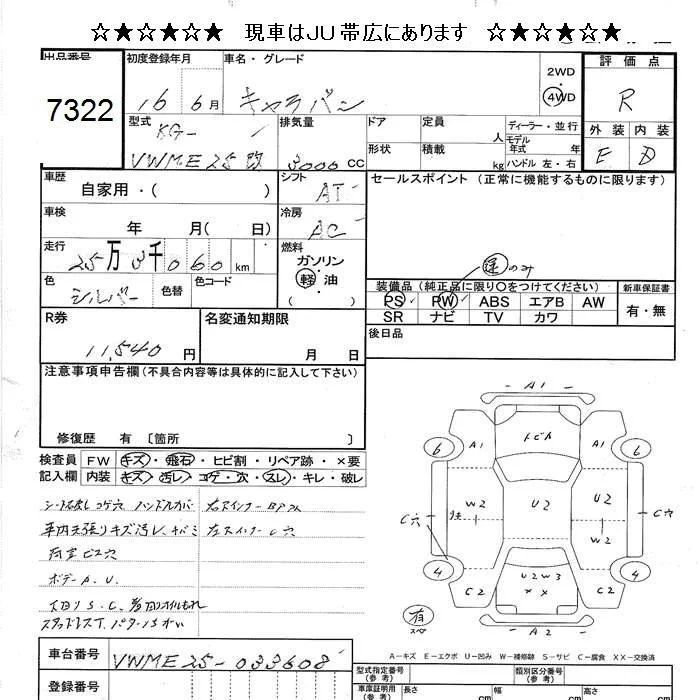 ☆★☆★☆★ 現車はJU帯広にあります ☆★☆★☆★
出品番号 初度登録年月 車名・グレード 評価点
7322 16 6月 キャラバン 2WD 4WD R
型式 排気量 ドア 定員 人 ディーラー・並行 外装 内装
KG- VWME25改 3000 CC 形状 積載 kg モデル年式 年 ハンドル 左・右 E D
車歴 自家用・( ) シフト AT セールスポイント (正常に機能するものに限ります)
車検 年 月( 日) 冷房 AC
走行 25万3千060km 燃料 ガソリン・軽油
色 シルバー 色替 色コード
運のみ
装備品(純正品に限り○をつけてください) 新車保証書
PS PW ABS エアB AW 有・無
SR ナビ TV カワ
R券 11,540円 名変通知期限 月 日 後日品
注意事項申告欄(不具合内容等は具体的に記入して下さい)
修復歴 有 〔箇所 〕
検査員 FW キズ・飛石・ヒビ割・リペア跡・×要
記入欄 内装 キズ・汚レ・コゲ・穴・スレ・キレ・破レ
コゲ穴 ハンドルカバー
車内天張りキズ汚レ
荷室ビス穴
ボデーA.U.
下回りS.C.
A1
A1 A1
6 6
C穴 W2 U2 U2 W2 C穴
4 4
C2 U2 W3 C2
××
A2
有
A-キズ E-エクボ U-凹み W-補修跡 S-サビ C-腐食 XX-交換済
車台番号 VWME25-033608
登録番号
型式指定番号(参考) 類別区分番号(参考)
車庫証明用(参考) 長さ cm 幅 cm 高さ cm